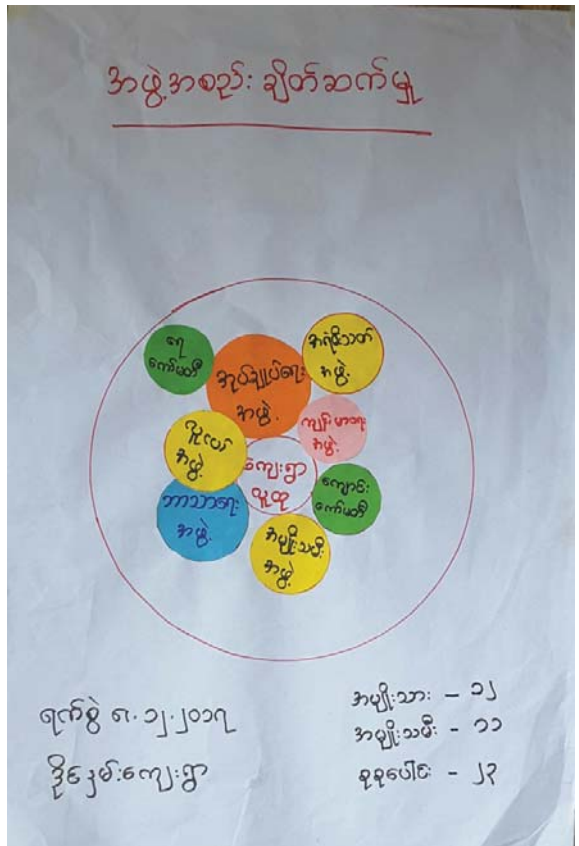 အဖွဲ့အစည်း ချိတ်ဆက်မှု
ရေ
ကော်မတီ
အုပ်ချုပ်ရေး
အဖွဲ့
အရံမီးသတ်
အဖွဲ့
ကျန်းမာရေး
အဖွဲ့
လူငယ်
အဖွဲ့
ကျေးရွာ
လူထု
ကျောင်း
ကော်မတီ
ဘာသာရေး
အဖွဲ့
အမျိုးသမီး
အဖွဲ့
ရက်စွဲ ၈.၁၂.၂၀၁၇
အမျိုးသား - ၁၂
အမျိုးသမီး - ၁၁
စုစုပေါင်း - ၂၃